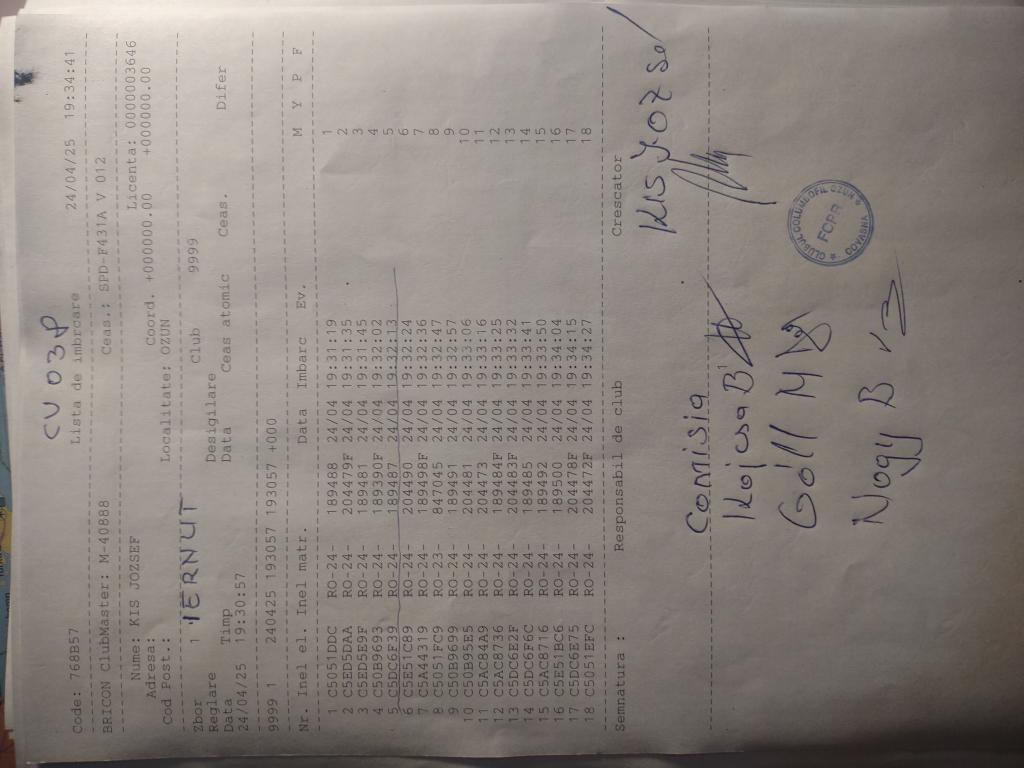 CV 03P
Code: 768B57 Lista de imbrcare 24/04/25 19:34:41
BRICON ClubMaster: M-40888 Ceas.: SPD-F431A V 012
Nume: KIS JOZSEF Licenta: 00000003646
Adresa: Coord. +000000.00 +0000000.00
Cod Post.: Localitate: OZUN
Zbor 1 IERNUT Club 9999
Reglare Desigilare
Data Timp Data Ceas atomic Ceas. Difer
24/04/25 19:30:57
9999 1 240425 193057 193057 +000
Nr. Inel el. Inel matr. Data Imbarc Ev. M Y P F
1 C5051DDC RO-24- 189488 24/04 19:31:19 1
2 C5ED5DAA RO-24- 204479F 24/04 19:31:35 2
3 C5ED5E9F RO-24- 189481 24/04 19:31:45 3
4 C50B9693 RO-24- 189390F 24/04 19:32:02 4
5 C5DC6F39 RO-24- 189487 24/04 19:32:13 5
6 C5E51C89 RO-24- 204490 24/04 19:32:24 6
7 C5AA4319 RO-24- 189498F 24/04 19:32:36 7
8 C5051FC9 RO-23- 847045 24/04 19:32:47 8
9 C50B9699 RO-24- 189491 24/04 19:32:57 9
10 C50B95E5 RO-24- 204481 24/04 19:33:06 10
11 C5AC84A9 RO-24- 204473 24/04 19:33:16 11
12 C5AC8736 RO-24- 189484F 24/04 19:33:25 12
13 C5DC6E2F RO-24- 204483F 24/04 19:33:32 13
14 C5DC6F6C RO-24- 189485 24/04 19:33:41 14
15 C5AC8716 RO-24- 189492 24/04 19:33:50 15
16 C5E51BC6 RO-24- 189500 24/04 19:34:04 16
17 C5DC6E75 RO-24- 204478F 24/04 19:34:15 17
18 C5051EFC RO-24- 204472F 24/04 19:34:27 18
Semnatura : Responsabil de club Crescator
Comisia KIS JOZSEF
Kajcsa B
Góll M
Nagy B
CLUBUL COLUMBOFIL OZUN
FCPR
COVASNA